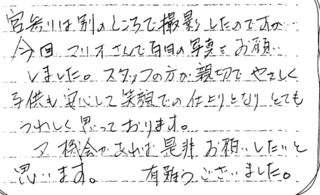 宮参りは別のところで撮影したのですが
今回マリオさんで百日の写真をお願い
しました。スタッフの方が親切でやさしく
子供も安心して笑顔での仕上りとなりとても
うれしく思っております。
又機会があれば是非お願いしたいと
思います。 有難うございました。